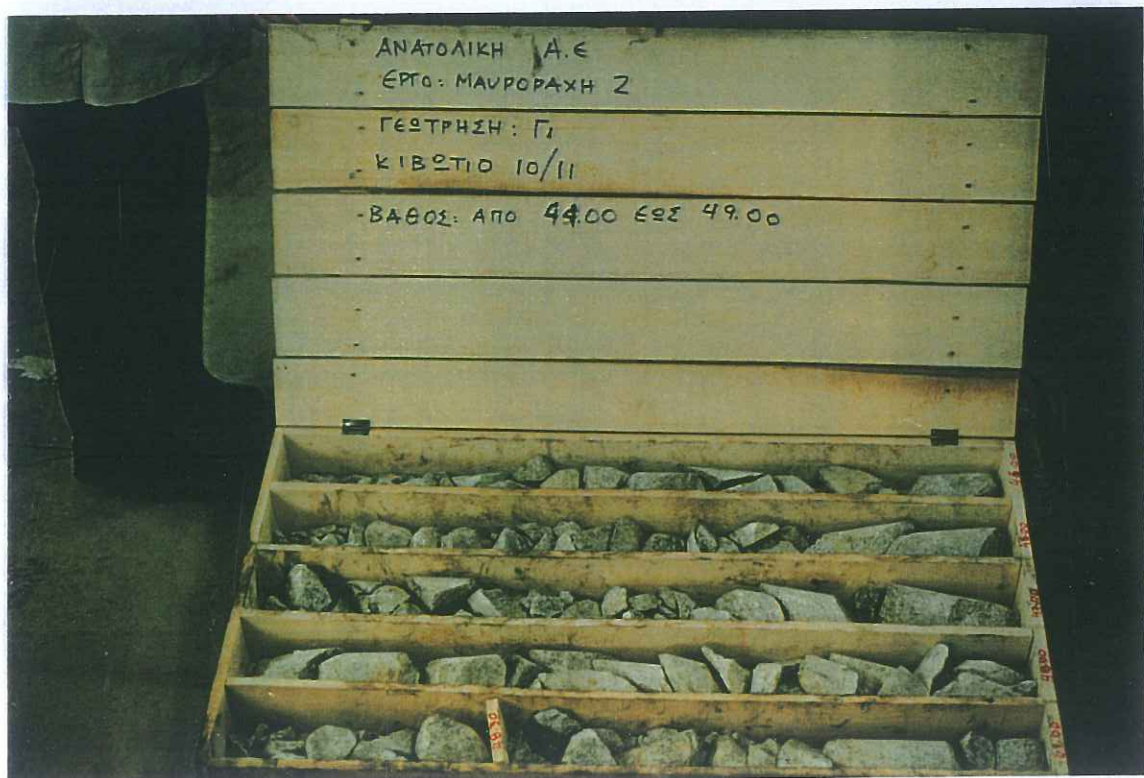 ΑΝΑΤΟΛΙΚΗ Α.Ε
ΕΡΓΟ: ΜΑΥΡΟΡΑΧΗ 2
ΓΕΩΤΡΗΣΗ: Γ1
ΚΙΒΩΤΙΟ 10/11
-ΒΑΘΟΣ: ΑΠΟ 44.00 ΕΩΣ 49.00
48.00